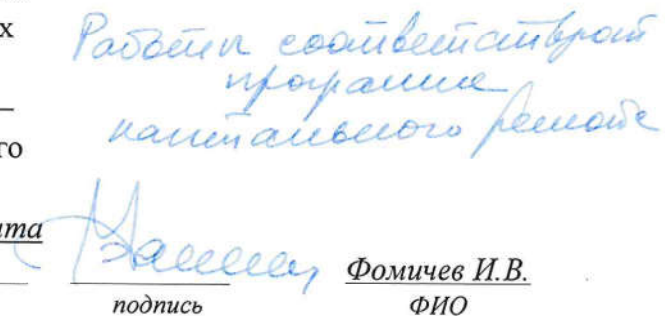 х
Работы соответствуют
программе
го
капитального ремонта
ита
Фомичев И.В.
подпись
ФИО